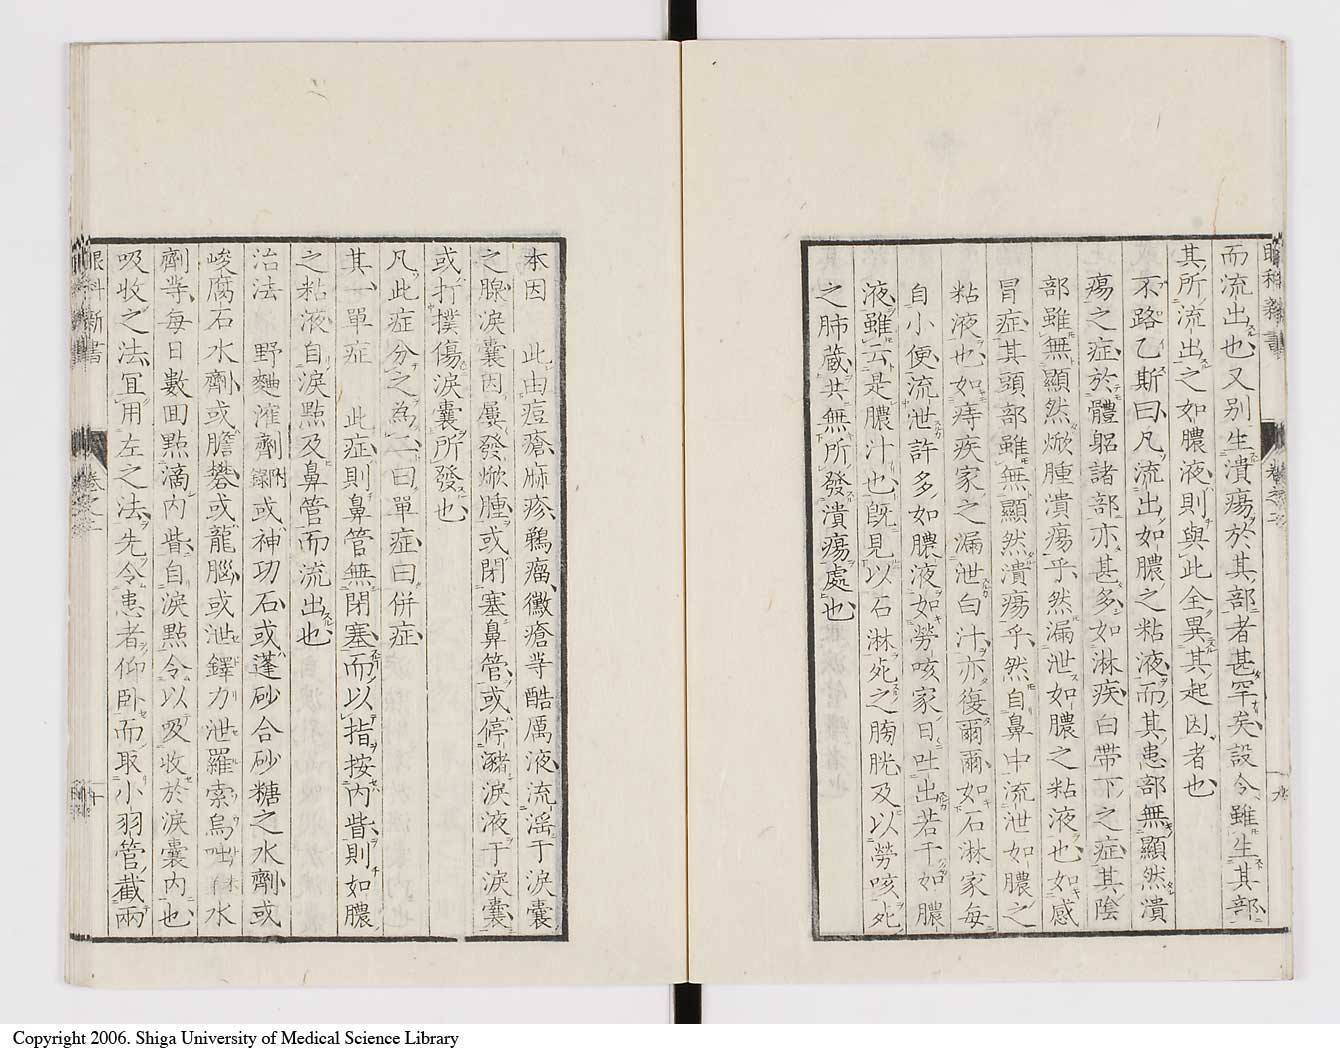 而流出也又別生潰瘍於其部者甚罕矣設令雖生其部
其所流出之如膿液則與此全異其起因者也
不路乙斯曰凡流出如膿之粘液而其患部無顯然潰
瘍之症於體軀諸部亦甚多如淋疾白帶下之症其陰
部雖無顯然焮腫潰瘍乎然漏泄如膿之粘液也如感
冒症其頭部雖無顯然潰瘍乎然自鼻中流泄如膿之
粘液也如痔疾家之漏泄白汁亦復爾爾如石淋家每
自小便流泄許多如膿液如勞咳家日吐出若干如膿
液雖云是膿汁也既見以石淋死之膀胱及以勞咳死
之肺藏共無所發潰瘍處也
本因 此由痘瘡麻疹鵝瘤黴瘡等酷厲液流淫于淚囊
之腺淚囊因屢發焮腫或閉塞鼻管或停瀦淚液于淚囊
或打撲傷淚囊所發也
凡此症分之為二曰單症曰併症
其一單症 此症則鼻管無閉塞而以指按內眥則如膿
之粘液自淚點及鼻管而流出也
治法 野麯漼劑附錄或神功石或蓬砂合砂糖之水劑或
峻腐石水劑或膽礬或龍腦或泄鐸力泄羅索烏咄 水
劑等每日數回點滴內眥自淚點令以吸收於淚囊內也
吸收之法宜用左之法先令患者仰臥而取小羽管截兩
眼科新書 卷之二 九
眼科新書 卷之二 十
Copyright 2006. Shiga University of Medical Science Library